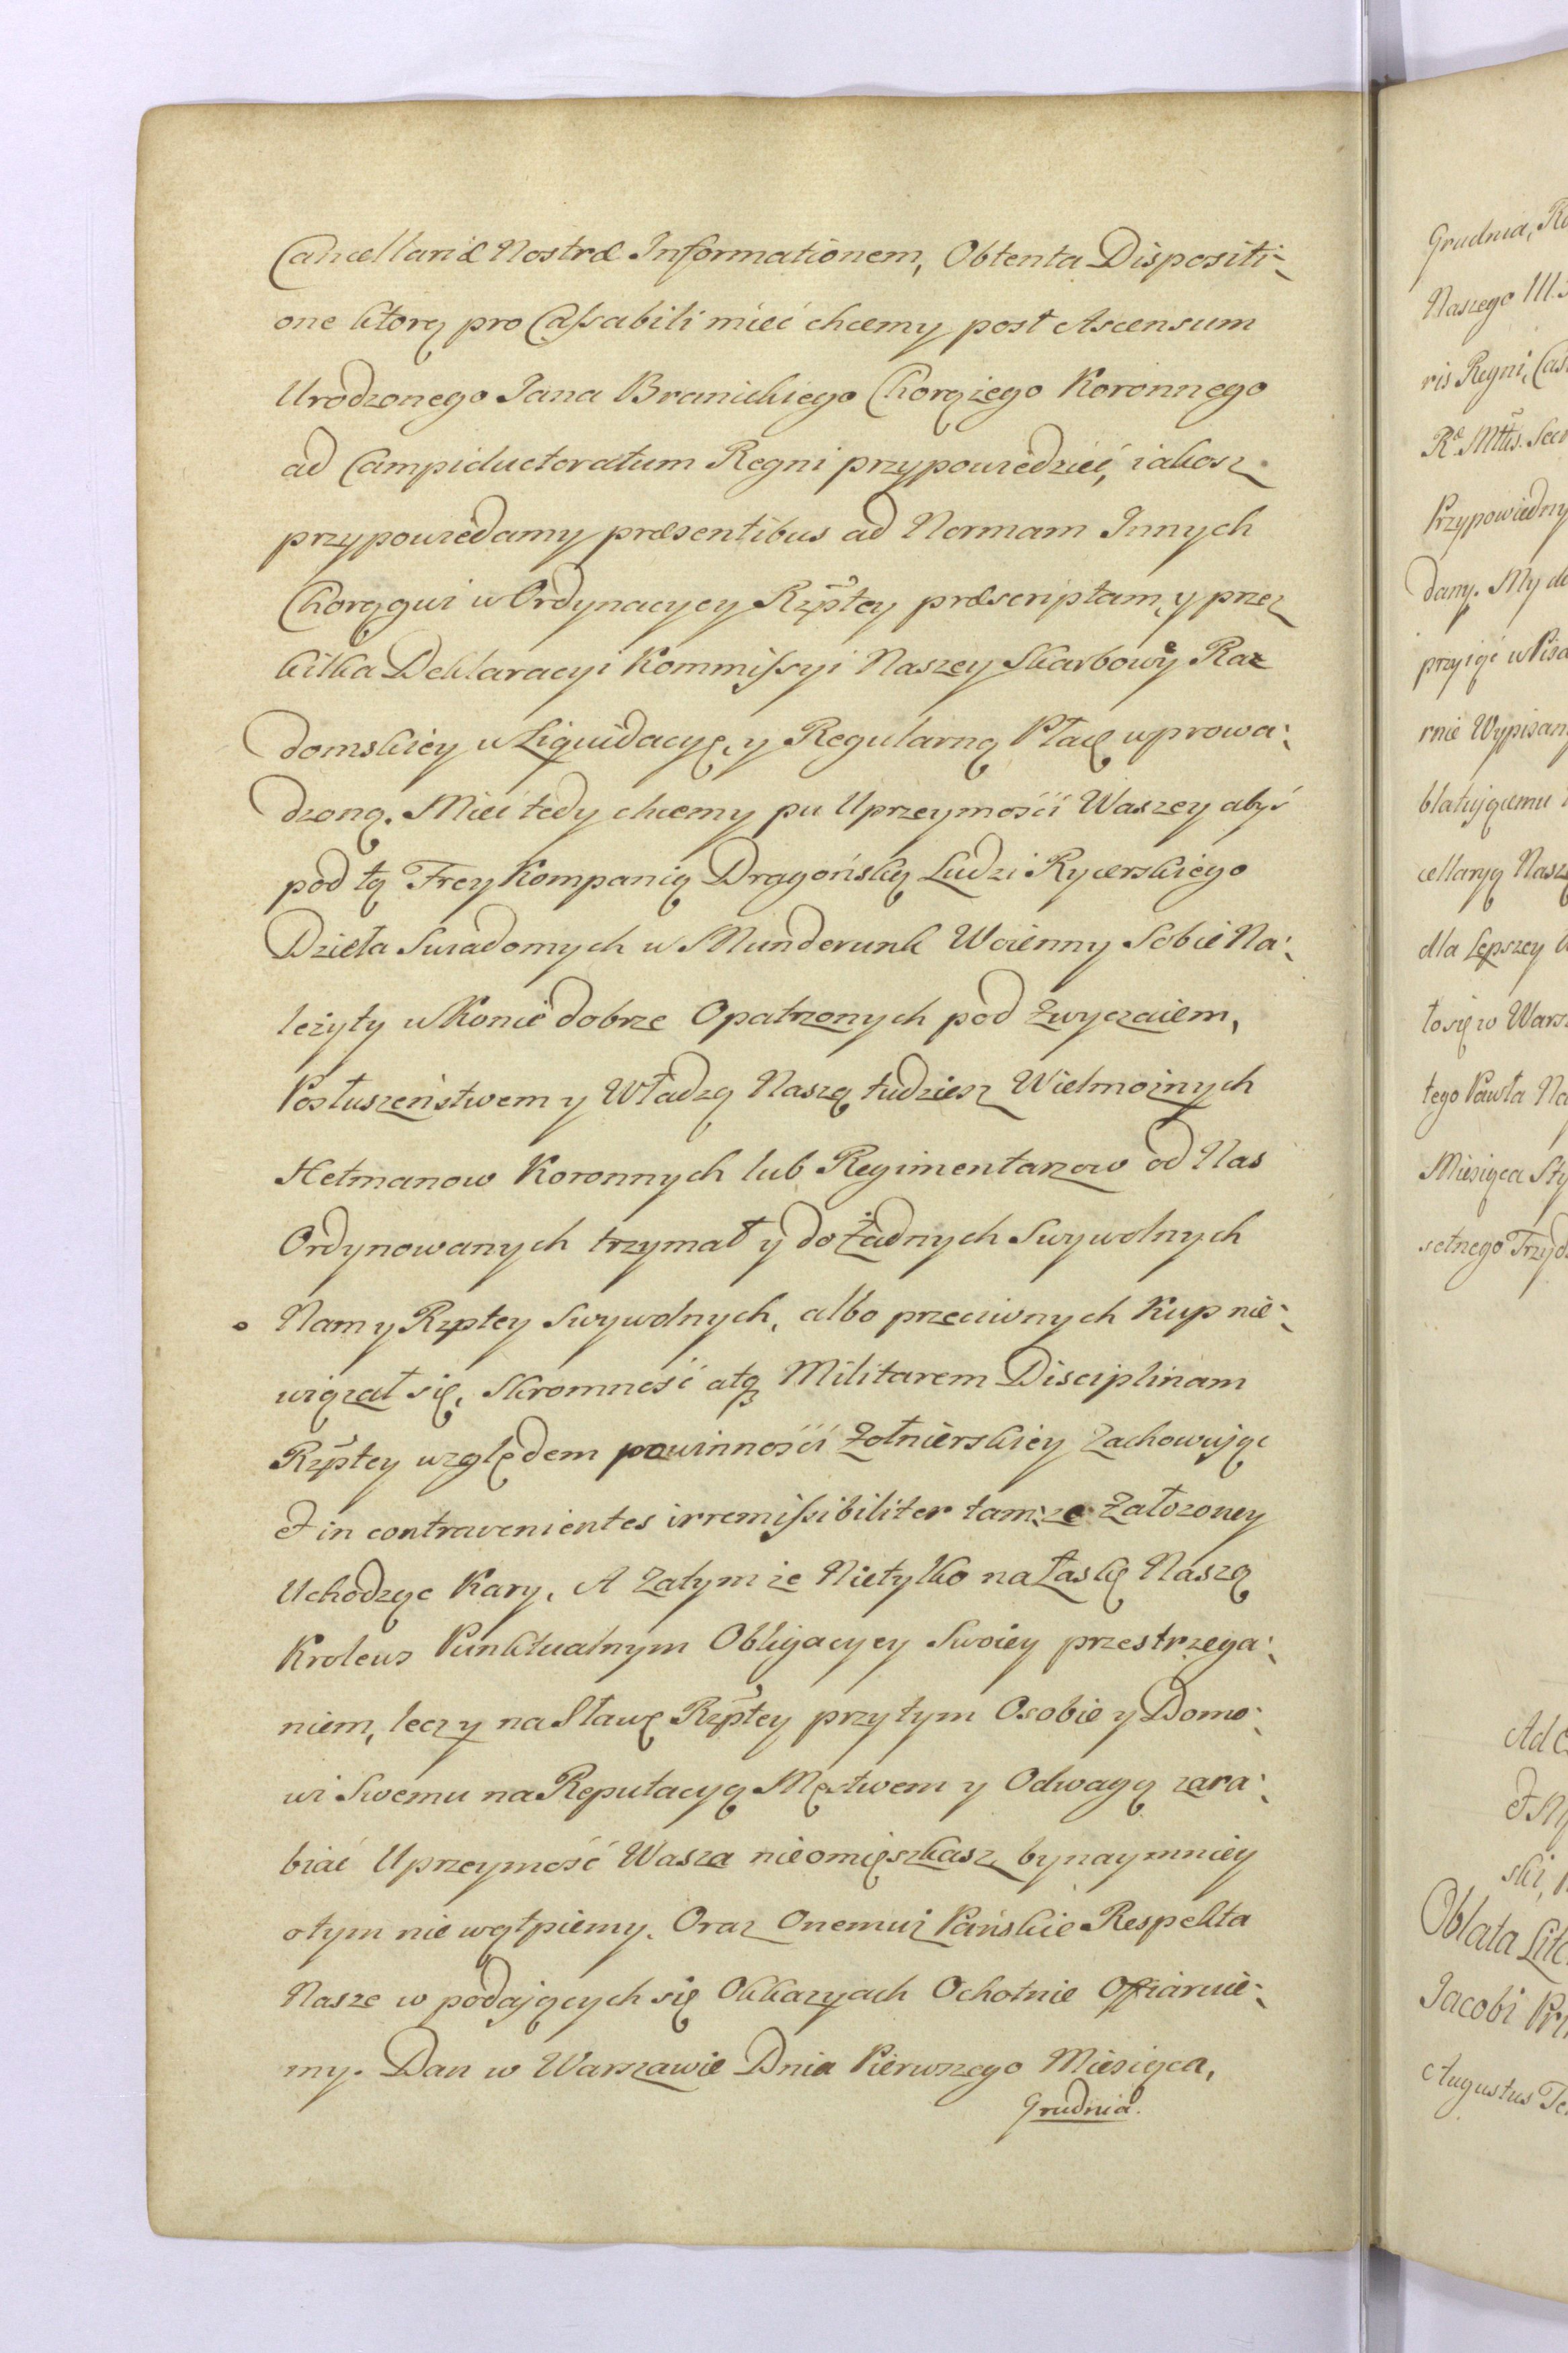 Cancellariæ Nostræ Informationem, Obtenta Dispositi-
one ktorą pro Cassabili mieć chcemy post Ascensum
Urodzonego Jana Branickiego Chorążego Koronnego
ad Campiductoratum Regni przypowiedzieć, iakosz
przypowiedamy præsentibus ad Normam Innych
Chorągwi w Ordynacyey Rzptey præscriptam, y przez
kilka Deklaracyi Kommissyi Naszey Skarbowey Ra:
domskiey w Liquidacyę, y Regularną Płacę wprowa:
dzoną. Mieć tedy chcemy pu Uprzeymości Waszey abyś
pod tą Frey Kompanią Dragońską Ludzi Rycerskiego
Dzieła Swiadomych w Munderunk Woienny Sobie Na:
leżyty w Konie dobrze Opatrzonych pod Zwyczaiem,
Posłuszeństwem y Władzą Naszą tudziesz Wielmożnych
Hetmanow Koronnych lub Regimentarzow od Nas
Ordynowanych trzymał y do Żadnych Swywolnych
Nam y Rzptey Swywolnych, albo przeciwnych Kup nie:
wiązał się, Skromność atq Militarem Disciplinam
Rzptey względem powinności Żołnierskiey Zachowując
et in contravenientes irremissibiliter tam:że Załozoney
Uchodząc Kary. A Zatym że Nietylko na Łaskę Naszą
Krolews Punktualnym Obligacyey Swoiey przestrzega:
niem, lecz y na Sławę Rzptey przytym Osobie y Domo:
wi Swemu na Reputacyą Męstwem y Odwagą zara:
biać Uprzeymość Wasza nieomięszkasz, bynaymniey
otym nie wątpiemy. Oraz Onemuż Pańskie Respekta
Nasze w podających się Okkazyach Ochotnie Offiaruie:
my. Dan w Warszawie Dnia Pierwszego Miesiąca,
Grudnia.
Grudnia,
Naszego III.
ris Regni,
Przypowiedny
dany. My
przyiąć w
rnie Wypisan
blatującemu
cellaryą
dla Lepszey
to się w
tego Pawła
Miesiąca
setnego
Ad
ski,
Oblata
Jacobi
Augustus